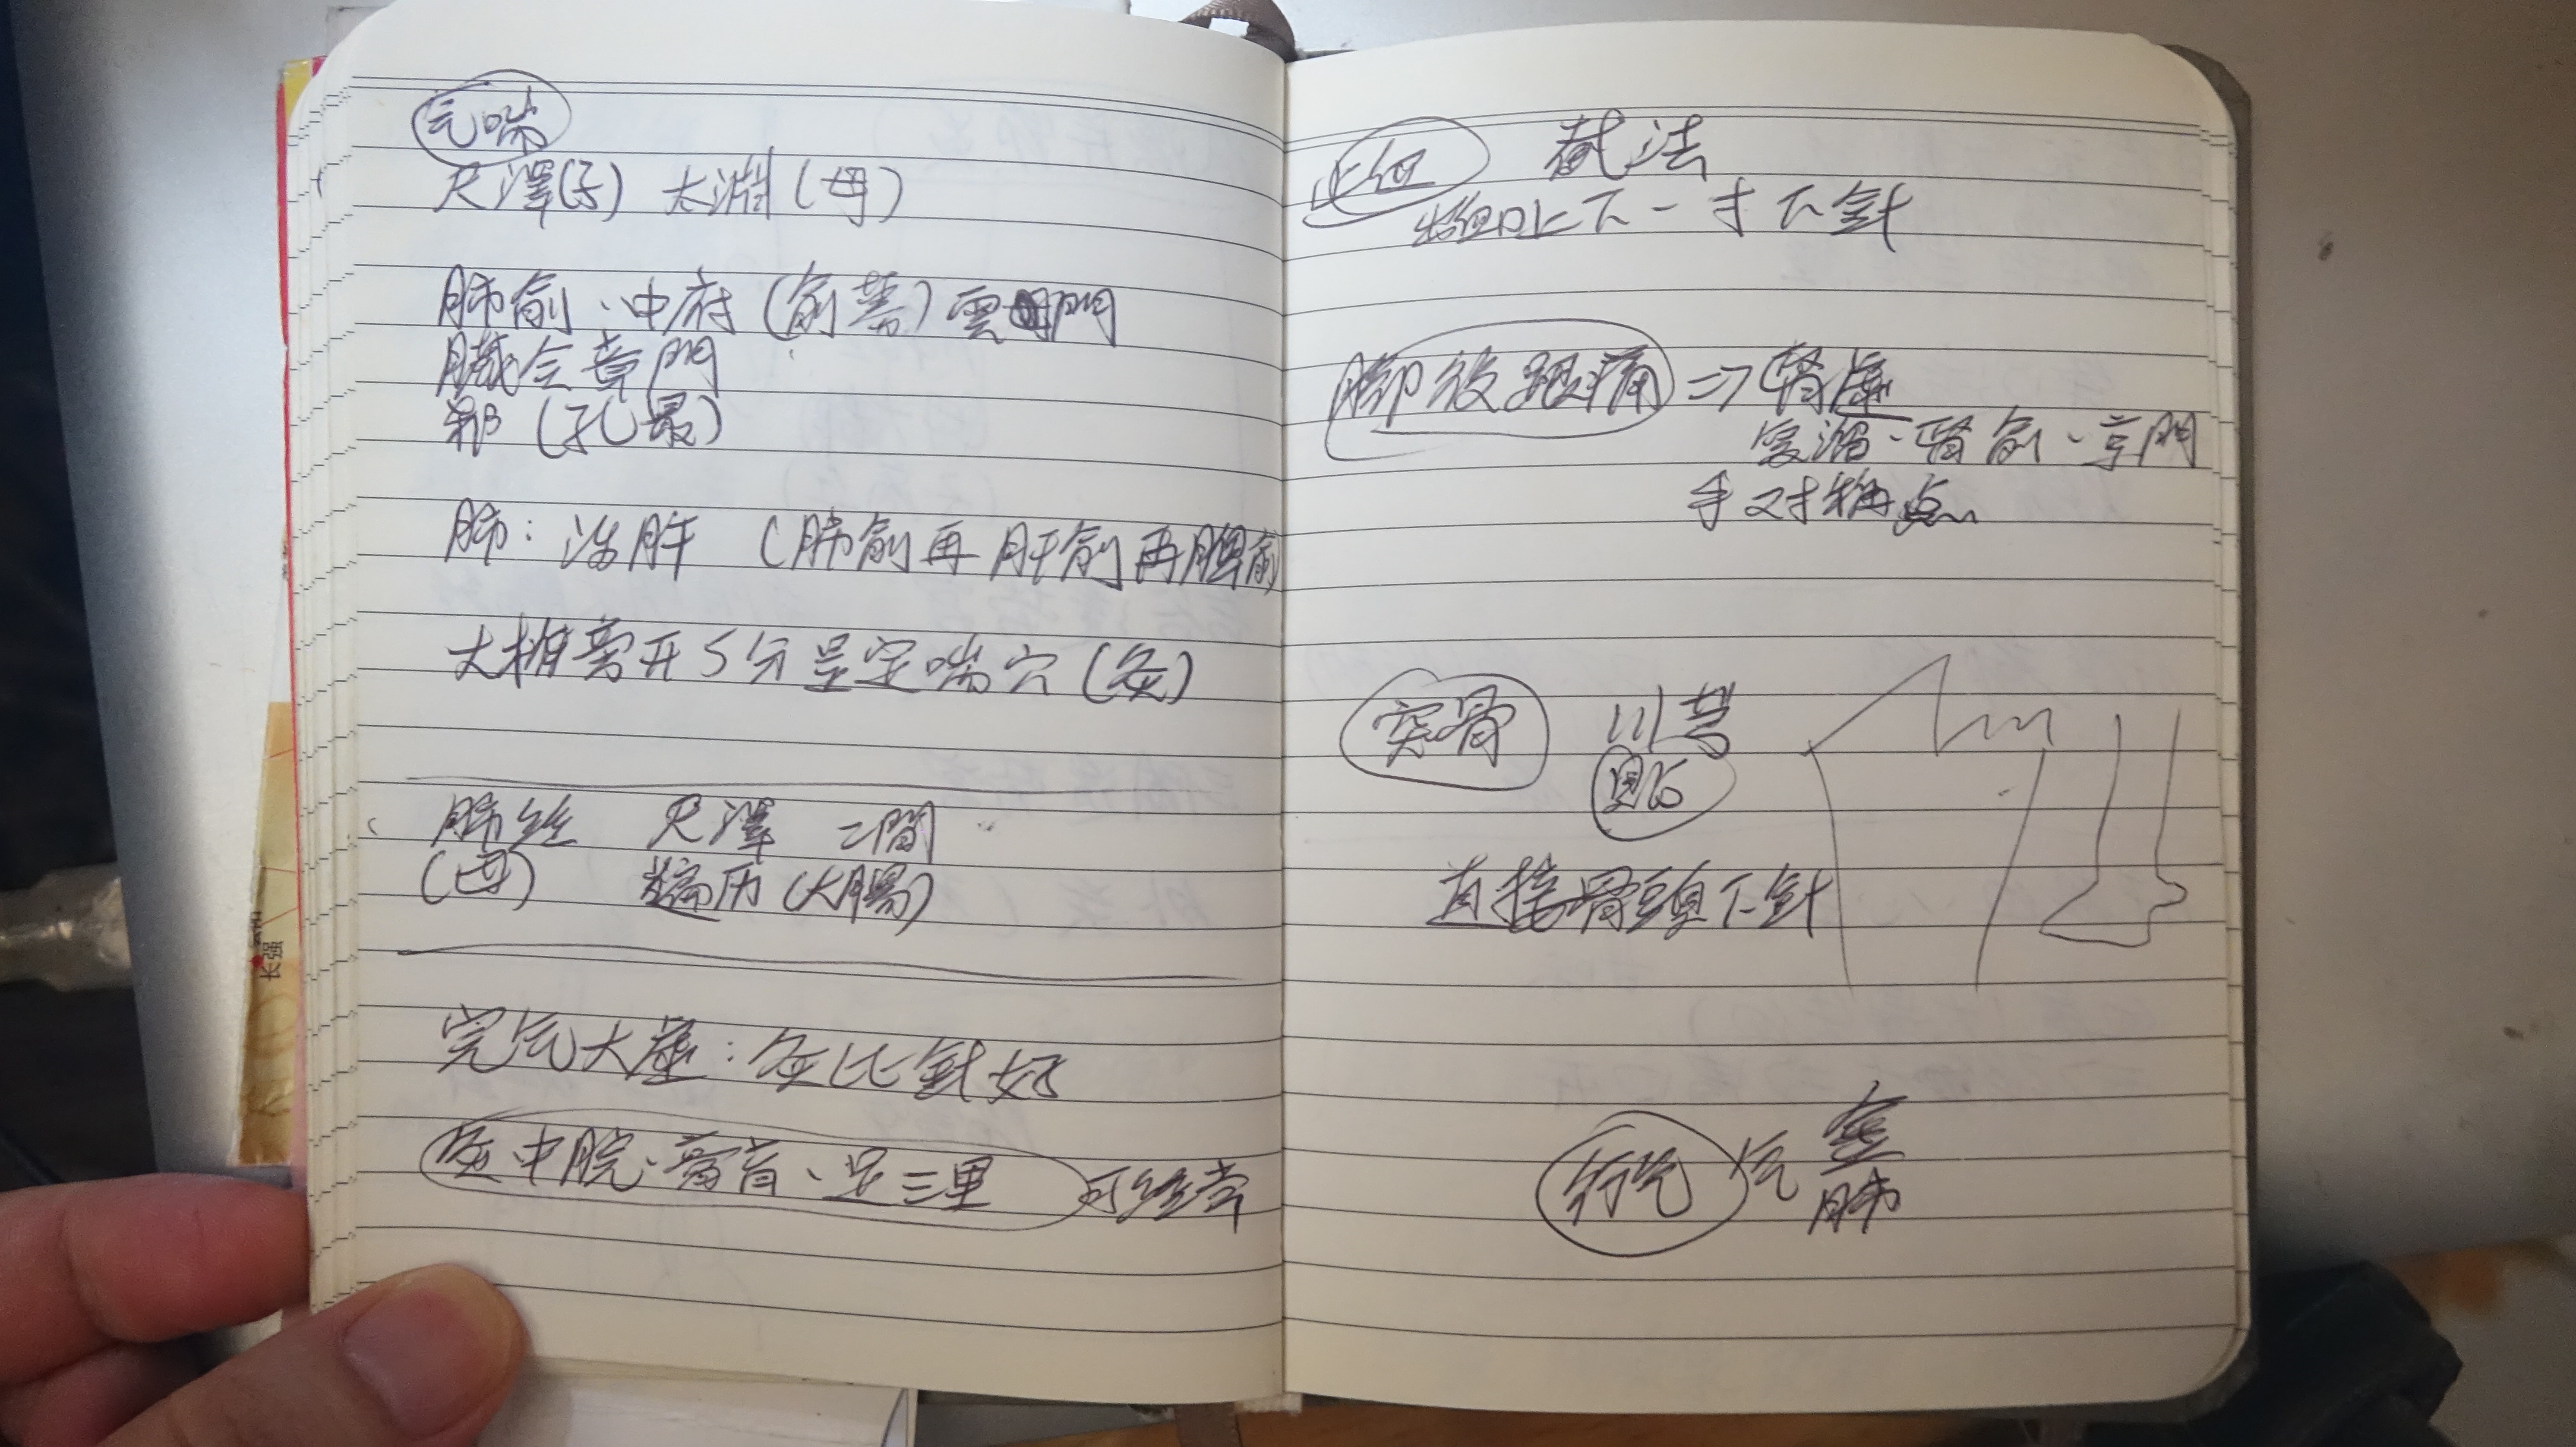 气喘
尺澤(子) 太淵(母)
肺俞、中府(俞募)雲門
臟会章門
郄(孔最)
肺: 涉肝 (肺俞再肝俞再脾俞
大椎旁开5分是定喘穴(灸)
肺経 尺澤 二間
偏历(大腸)
完气大虛: 灸比針好
灸中脘、膏肓、足三里 可経常
止血 截法
出血口上下一寸下針
脚後跟痛 => 腎虛
復溜、腎俞、京門
手对称点
突骨 川芎
直接骨頭下針
行气 气
肺
长强